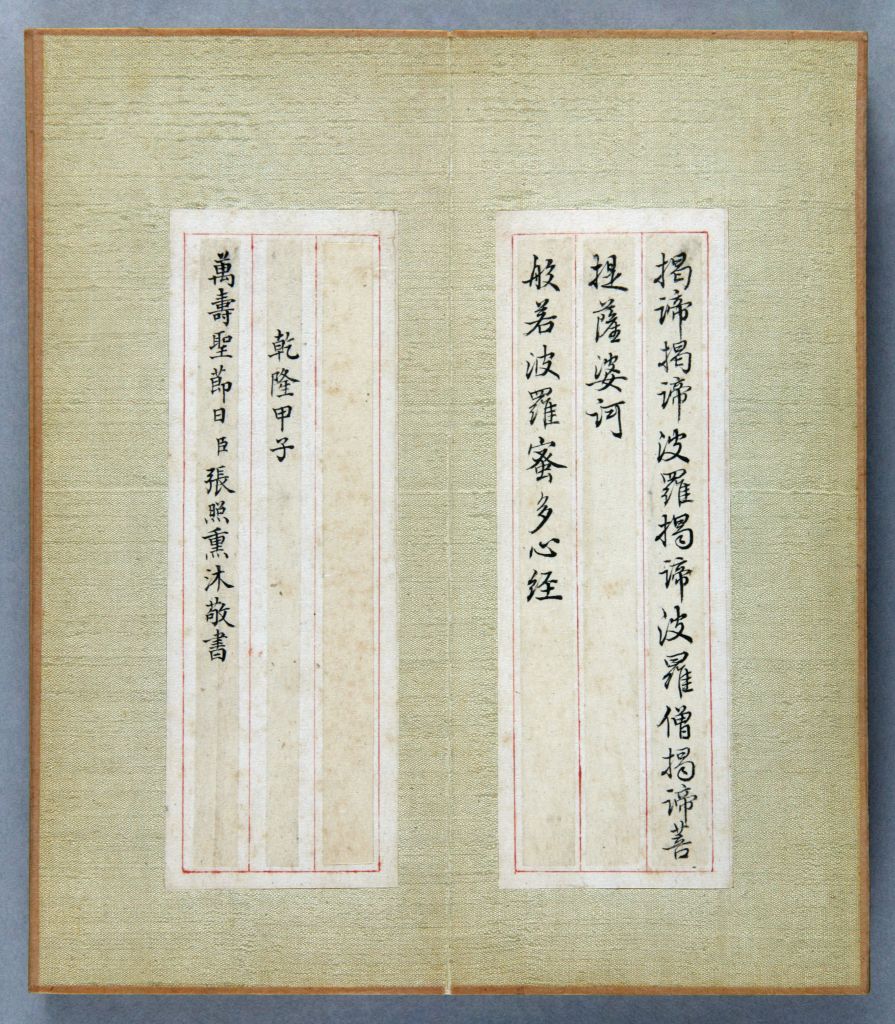 揭諦揭諦波羅揭諦波羅僧揭諦菩
提薩婆訶
般若波羅蜜多心経
乾隆甲子
萬壽聖節日臣張照熏沐敬書